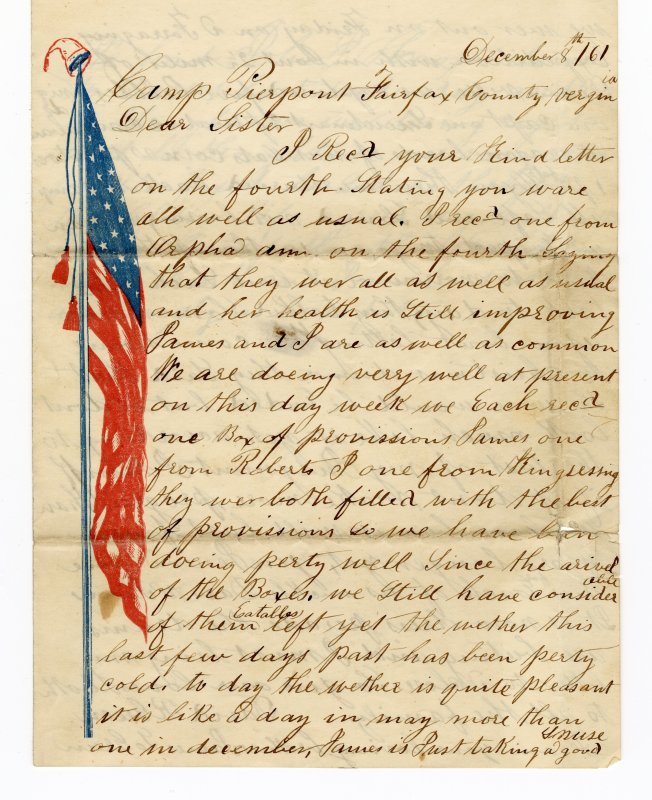 December 8th /61
Camp Pierpont Fairfax County vergin ia
Dear Sister
I Recd your Kind letter
on the fourth Stating you ware
all well as usual. I recd one from
Orpha ann on the fourth Saying
that they wer all as well as usual
and her health is Still improving
James and I are as well as common
We are doeing very well at present
on this day week we Each recd
one Box of provissions James one
from Roberts I one from Kingsessing
they wer both filled with the best
of provissions So we have ben
doeing perty well Since the arivel
of the Boxes. we Still have consider able
of them Eatables left yet the wether this
last few days past has been perty
cold. to day the wether is quite pleasant
it is like a day in may more than
one in december, James is Just taking a good Snuse